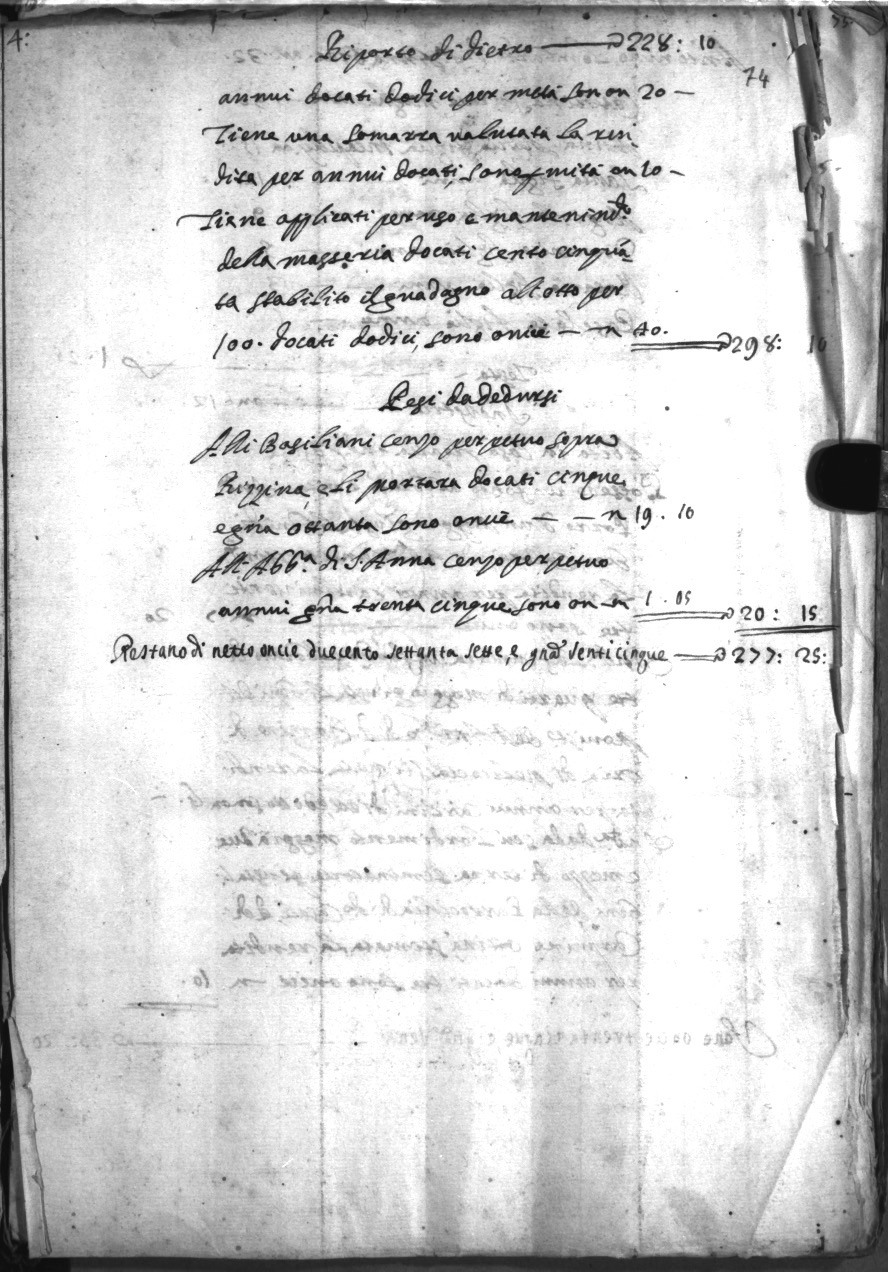 4:
Riporto di dietro 228: 10
74
annui docati dodici per metà son on 20 —
Tiene una somarra valutata la ren
dita per annui docati, sono metà on 10 —
Tiene applicati per uso e mantenim.to
della masseria docati cento cinquã
ta stabilito il guadagno all'otto per
100. docati dodici, sono oncie — n 40. 298: 10
Pesi da dedursi
Alli Basiliani cenzo perpetuo sopra
Rizzina, e li portara docati cinque,
e gña ottanta sono oncie — — n 19. 10
All' Abb.a di S. Anna cenzo perpetuo
annui gña trenta cinque sono on — n 1. 05 20: 15
Restano di netto oncie duecento settanta sette, e gña venti cinque 277: 25: